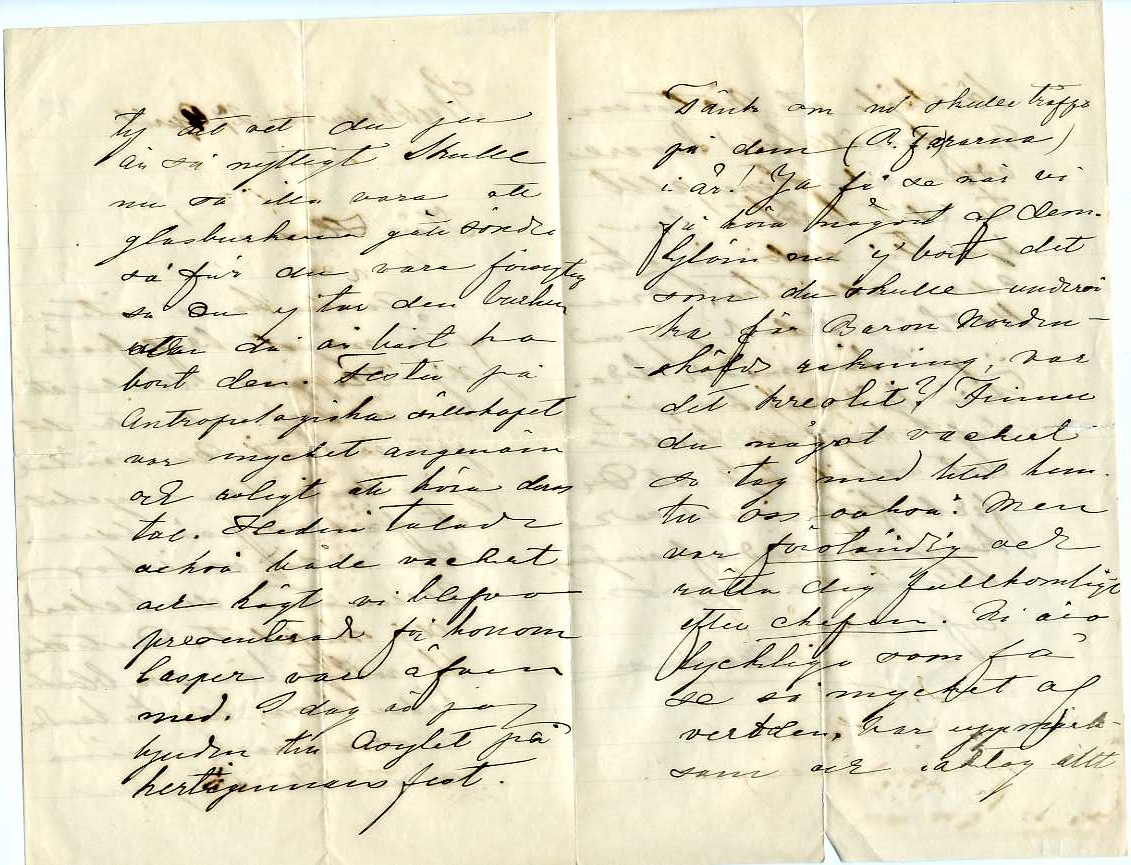 ty det vet du ju
är så nyttigt. Skulle
nu så illa vara att
glasburkarna gått sönder
så får du vara försigtig
så du ej tar den burken
utan då är bäst ha
bort den. Festen på
Antropologiska sällskapet
var mycket angenäm
och roligt att höra deras
tal. Hedin talade
också både vackert
och högt vi blefvo
presenterade för honom
Casper var äfven
med. I dag är jag
bjuden till Asylet på
hertiginnans fest.
Tänk om ni skulle träffa
på dem (R. Fararna)
i år! Ja få se när vi
få höra något af dem.
Glöm nu ej bort det
som du skulle undersö
ka för Baron Norden-
-skölds räkning, var
det kreolit? Finner
du något vackert
så tag med litet hem
till oss också! Men
var förståndig och
rätta dig fullkomligt
efter chefen. Ni äro
lyckliga som få
se så mycket af
verlden, var uppmärk-
sam och iakttag allt